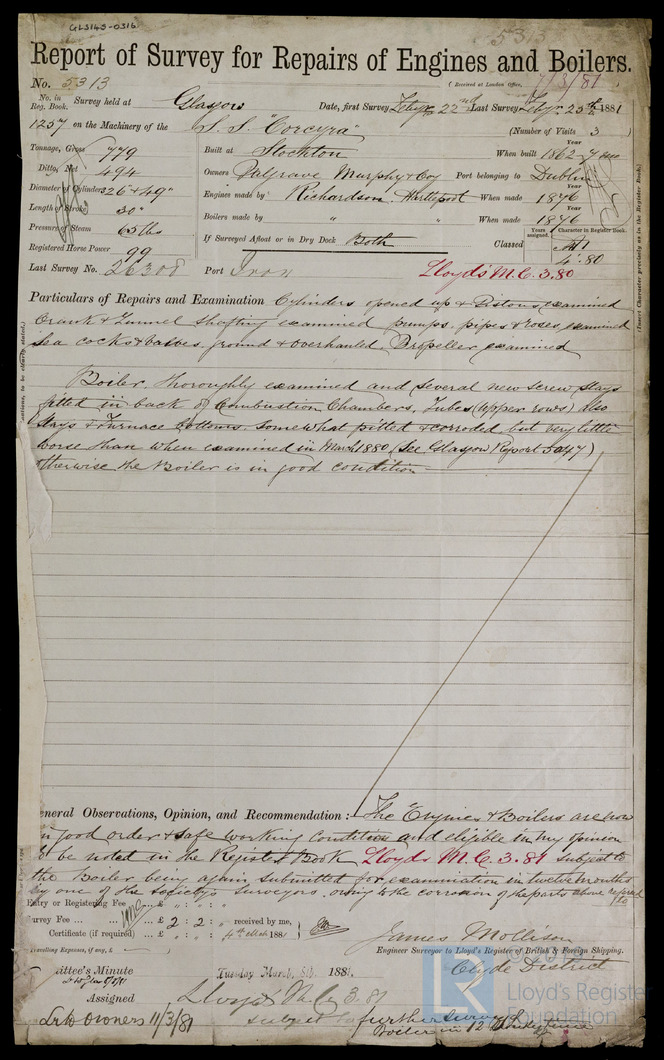 GLS145-0316
5313
Report of Survey for Repairs of Engines and Boilers.
No. 5313 (Received at London Office, 7/3/81
No. in Reg. Book. Survey held at Glasgow Date, first Survey Feby 22nd Last Survey Feby 25th 1881
1257 on the Machinery of the S.S. "Corcyra" (Number of Visits 3 )
Tonnage, Gross 779 Built at Stockton When built Year 1862
Ditto, Net 494 Owners Palgrave Murphy & Coy Port belonging to Dublin
Diameter of Cylinders 26 & 49" Engines made by Richardson Hartlepool When made Year 1876
Length of Stroke 30" Boilers made by " " When made Year 1876
Pressure of Steam 65 lbs If Surveyed Afloat or in Dry Dock Both Classed Years assigned. Character in Register Book.
Registered Horse Power 99 A1
4.80
Last Survey No. 26308 Port Iron Lloyd's M.C. 3.80
(Insert Character precisely as in the Register Book.)
Particulars of Repairs and Examination Cylinders opened up & Pistons examined
Crank & Tunnel Shafting examined pumps, pipes & roses, examined
Sea cocks & valves, ground & overhauled, Propeller examined
Boiler, thoroughly examined and several new screw stays
fitted in back of Combustion Chambers, Tubes (upper rows) also
Stays & Furnace bottoms, somewhat pitted & corroded but very little
worse than when examined in March 1880 (See Glasgow Report 5047)
otherwise the Boiler is in good condition
eneral Observations, Opinion, and Recommendation:— The Engines & Boilers are now
in good order & safe working Condition and eligible in my opinion
to be noted in the Register Book Lloyds M.C. 3.81 subject to
the Boiler being again submitted for examination in twelve months
by one of the Society's Surveyors, owing to the corrosion of the parts above referred to
Entry or Registering Fee ... £ " : " : "
urvey Fee ... ... £ 2 : 2 : " received by me,
Certificate (if required) ... £ " : " : " 4th March 1881
Travelling Expenses, if any, £
James Mollison
Engineer Surveyor to Lloyd's Register of British & Foreign Shipping.
Clyde District
ittee's Minute Tuesday March, 8th, 1881.
Assigned Lloyds M.C. 3.81
subject to further survey
Boiler in 12
Lr to Owners 11/3/81
LR
Lloyd's Register
Foundation